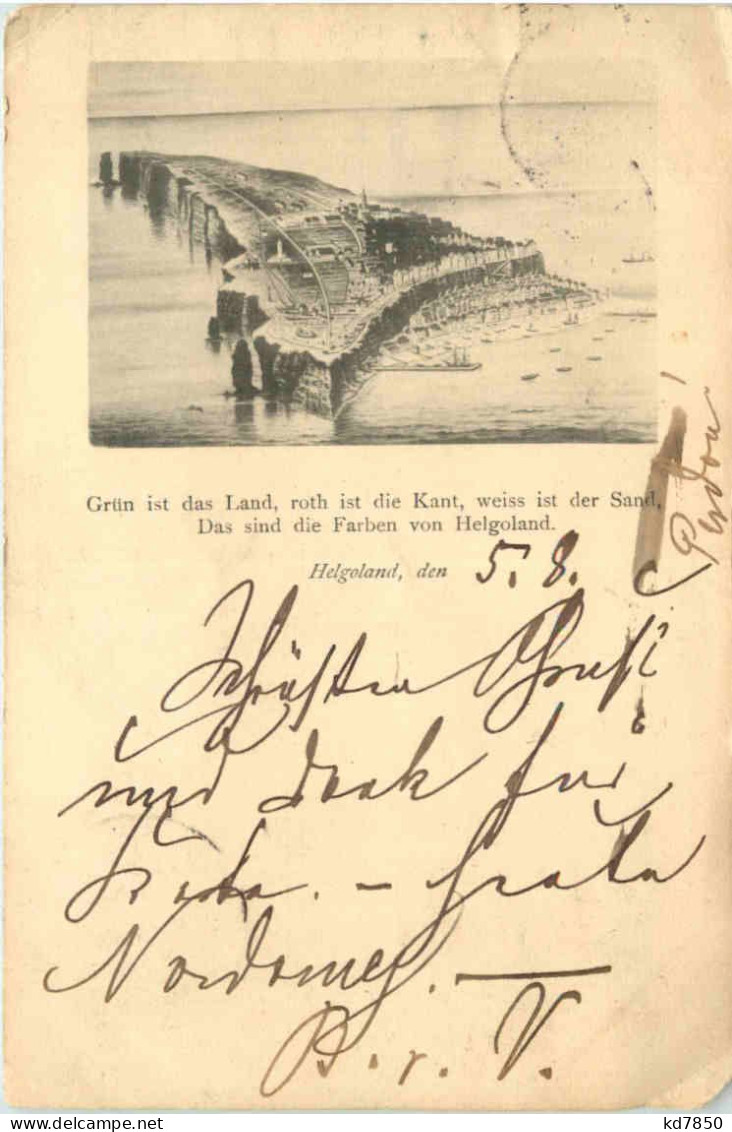 Grün ist das Land, roth ist die Kant, weiss ist der Sand,
Das sind die Farben von Helgoland.
Helgoland, den 5. 8.
Pardon!
Gruß
und Dank für
Karte. –
B. v. V.
kd7850